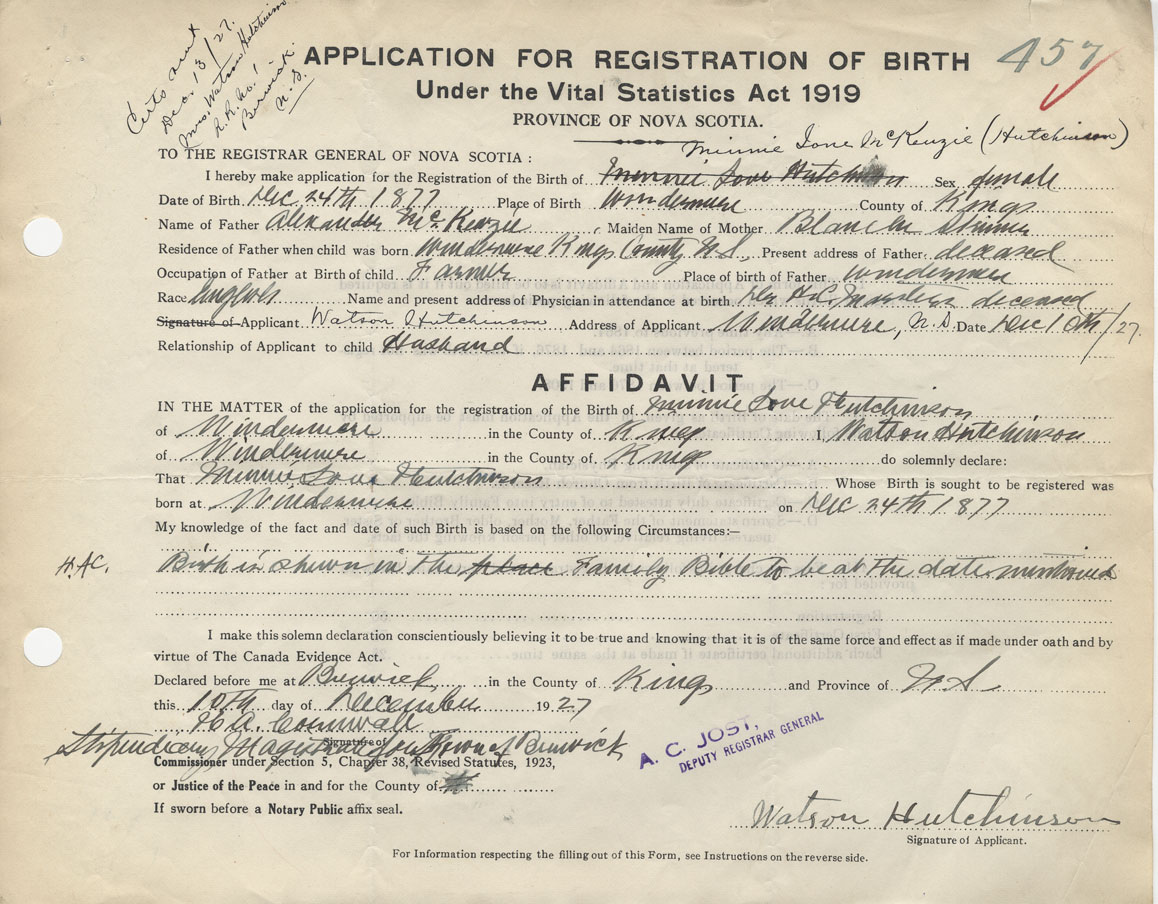 Certs sent
Dec. 13/27.
Mrs. Watson Hutchinson
R.R. No. 1
Berwick
N.S.
457
APPLICATION FOR REGISTRATION OF BIRTH
Under the Vital Statistics Act 1919
PROVINCE OF NOVA SCOTIA.
Minnie Ione McKenzie (Hutchinson)
TO THE REGISTRAR GENERAL OF NOVA SCOTIA :
I hereby make application for the Registration of the Birth of Minnie Ione Hutchinson Sex female
Date of Birth Dec 24th 1877 Place of Birth Windermere County of Kings
Name of Father Alexander McKenzie, Maiden Name of Mother Blanche Skinner
Residence of Father when child was born Windermere Kings County N.S., Present address of Father: deceased
Occupation of Father at Birth of child Farmer Place of birth of Father Windermere
Race English Name and present address of Physician in attendance at birth Dr H.C. Masters deceased
Signature of Applicant Watson Hutchinson Address of Applicant Windermere, N.S Date Dec 10th/27.
Relationship of Applicant to child Husband
AFFIDAVIT
IN THE MATTER of the application for the registration of the Birth of Minnie Ione Hutchinson
of Windermere in the County of Kings I, Watson Hutchinson
of Windermere in the County of Kings do solemnly declare:
That Minnie Ione Hutchinson Whose Birth is sought to be registered was
born at Windermere on Dec 24th 1877
My knowledge of the fact and date of such Birth is based on the following Circumstances:—
H.A.C. Birth is shown in the place Family Bible to be at the date mentioned
I make this solemn declaration conscientiously believing it to be true and knowing that it is of the same force and effect as if made under oath and by
virtue of The Canada Evidence Act.
Declared before me at Berwick in the County of Kings and Province of N.S.
this 10th day of December 1927
H.A. Cornwall
Signature of
Stipendiary Magistrate for Town of Berwick
Commissioner under Section 5, Chapter 38, Revised Statutes, 1923,
or Justice of the Peace in and for the County of
If sworn before a Notary Public affix seal.
A. C. JOST,
DEPUTY REGISTRAR GENERAL
Watson Hutchinson
Signature of Applicant.
For Information respecting the filling out of this Form, see Instructions on the reverse side.